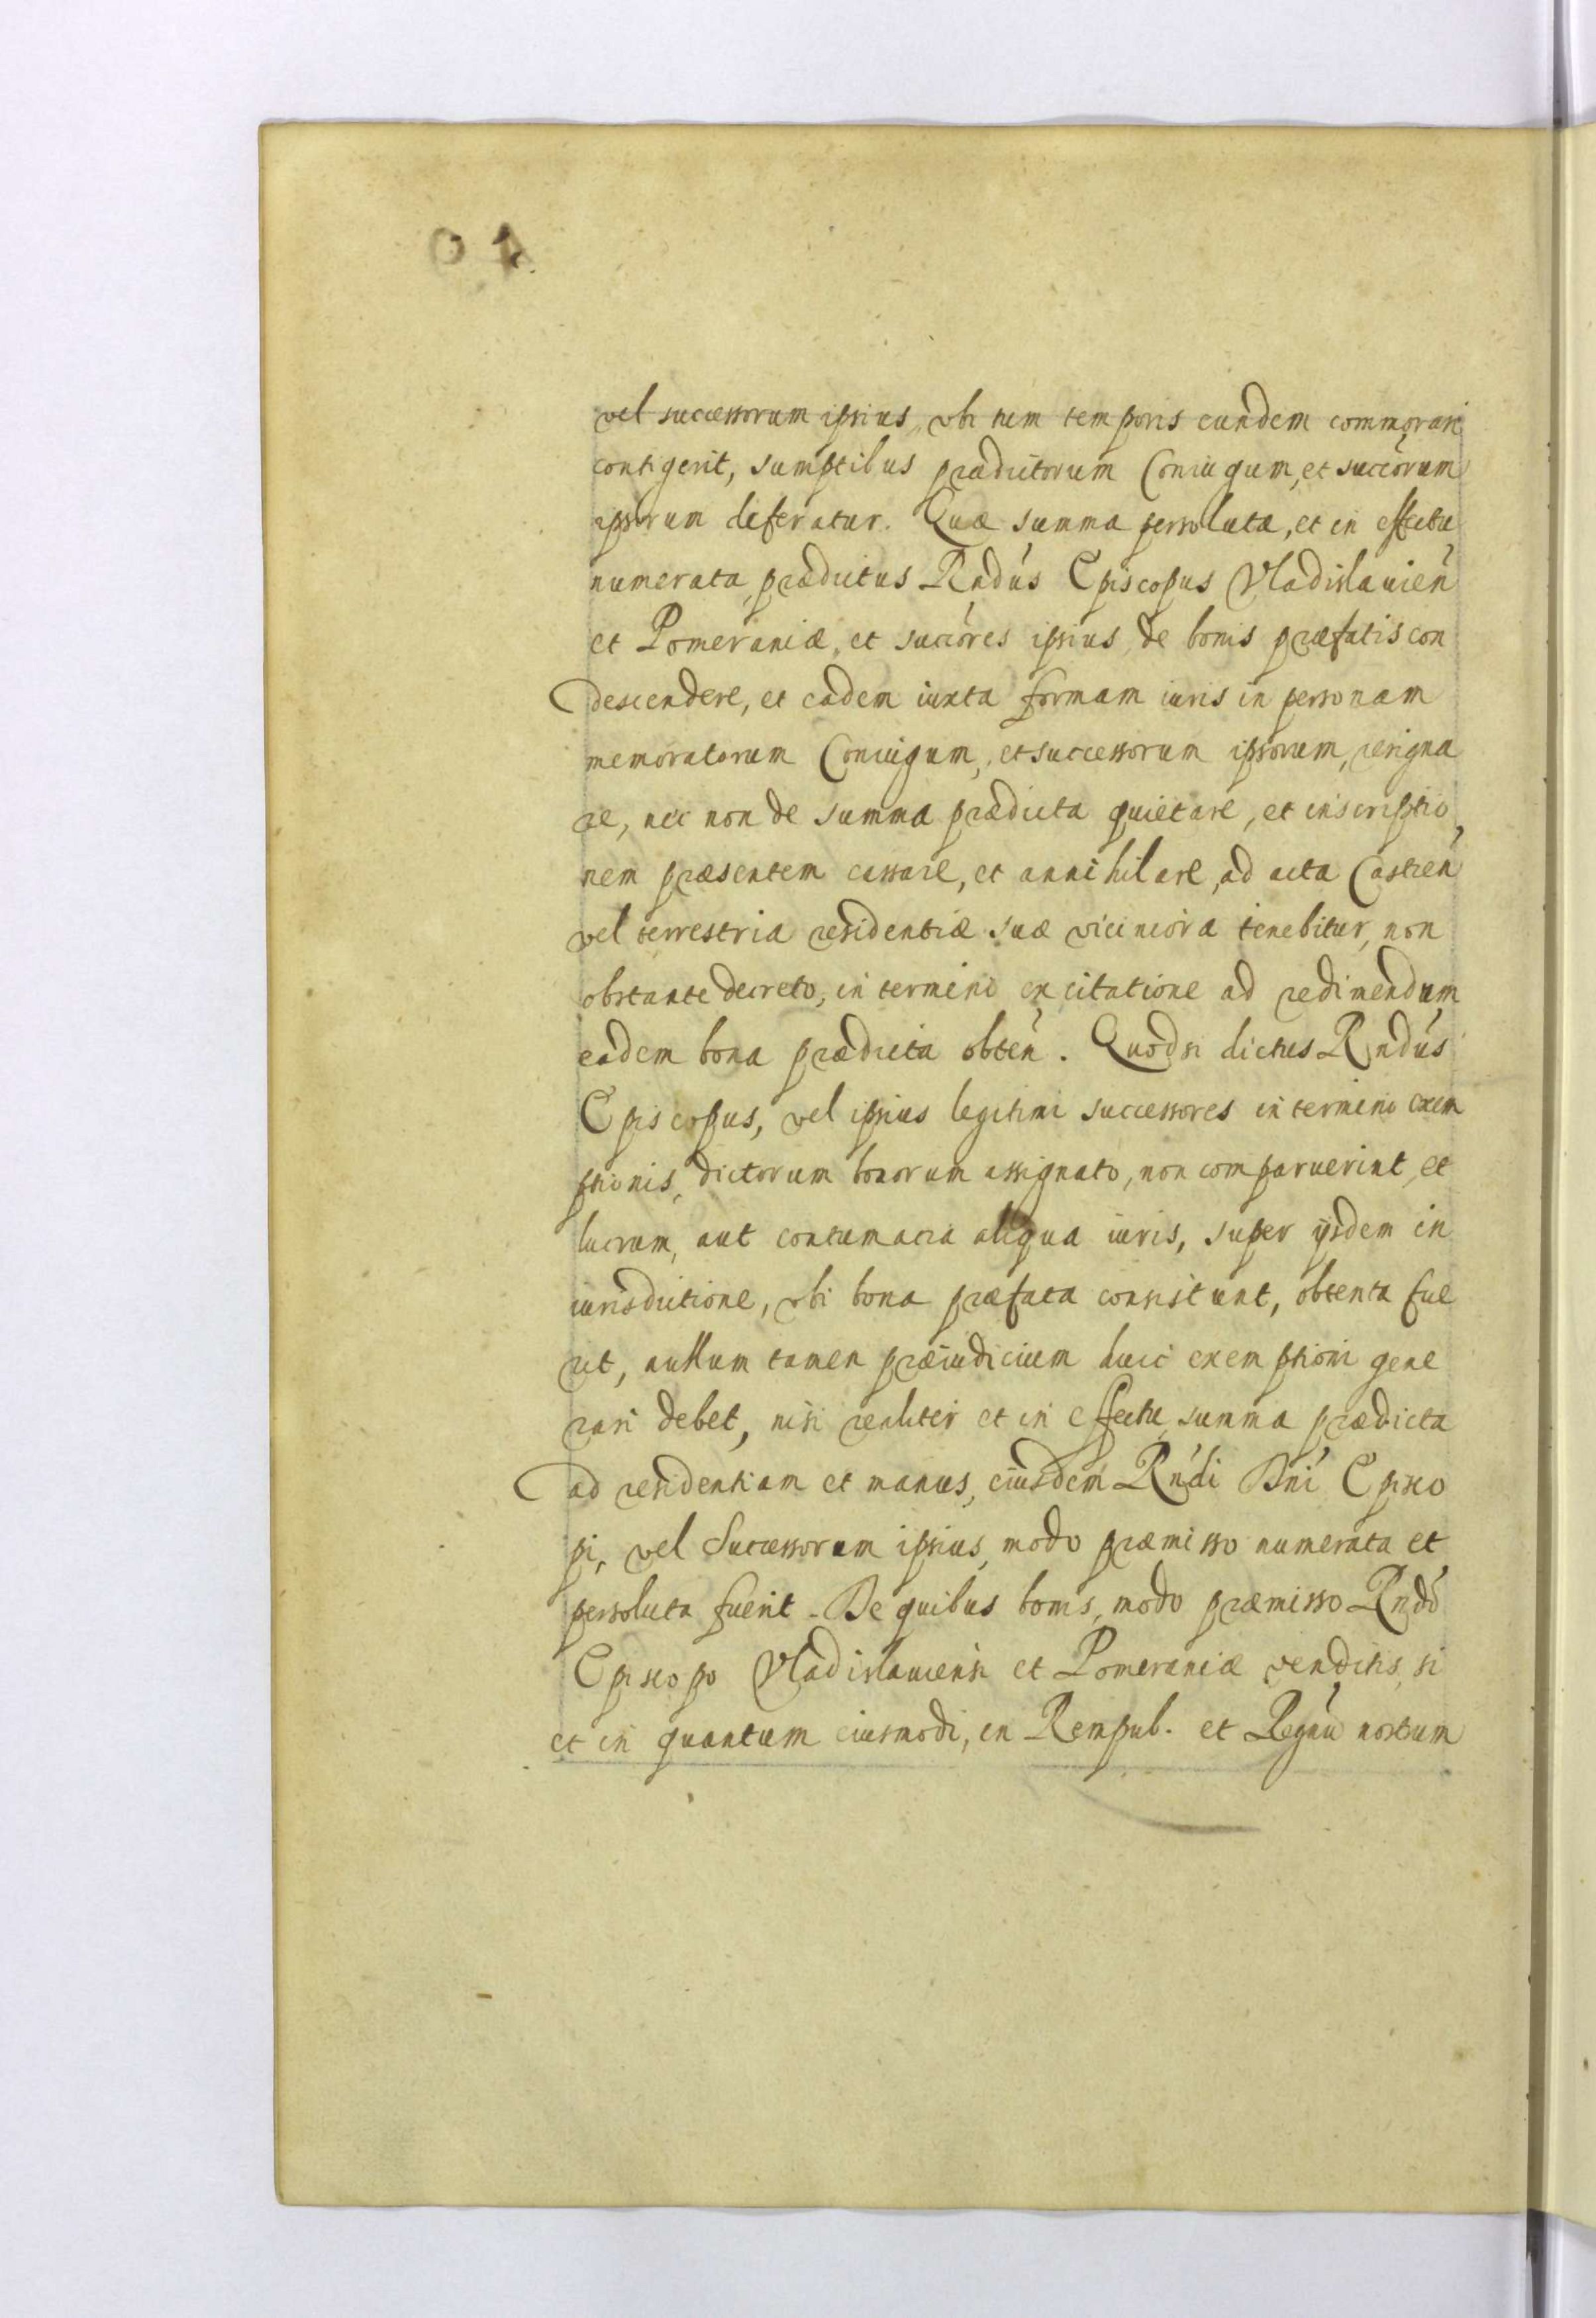 vel successorum ipsius, vbi tum temporis eundem commorari
contigerit, sumptibus prædictorum Coniugum, et succorum
ipsorum deferatur. Quæ summa persoluta, et in effectu
numerata, prædictus Rndus Episcopus Vladislauien
et Pomeraniæ, et succores ipsius, de bonis præfatis con
descendere, et eadem iuxta formam iuris in personam
memoratorum Coniugum, et successorum ipsorum, resigna
re, nec non de summa prædicta quietare, et inscriptio
nem præsentem cassare, et annihilare, ad acta Castren
vel terrestria residentiæ suæ viciniora tenebitur, non
obstante decreto, in termino ex citatione ad redimendum
eadem bona prædicta obten. Quodsi dictus Rndus
Episcopus, vel ipsius legitimi successores in termino exem
ptionis, dictorum bonorum assignato, non comparuerint, et
lucrum, aut contumacia aliqua iuris, super ijsdem in
iurisdictione, vbi bona præfata consistunt, obtenta fue
rit, nullum tamen præiudicium huic exemptioni gene
rari debet, nisi realiter et in effectu, summa prædicta
ad residentiam et manus, eiusdem Rndi Dni Episco
pi, vel Successorum ipsius, modo præmisso numerata et
persoluta fuerit. De quibus bonis, modo præmisso Rndo
Episcopo Vladislauiensi et Pomeraniæ venditis, si
et in quantum eiusmodi, in Rempub. et Regnu nostrum